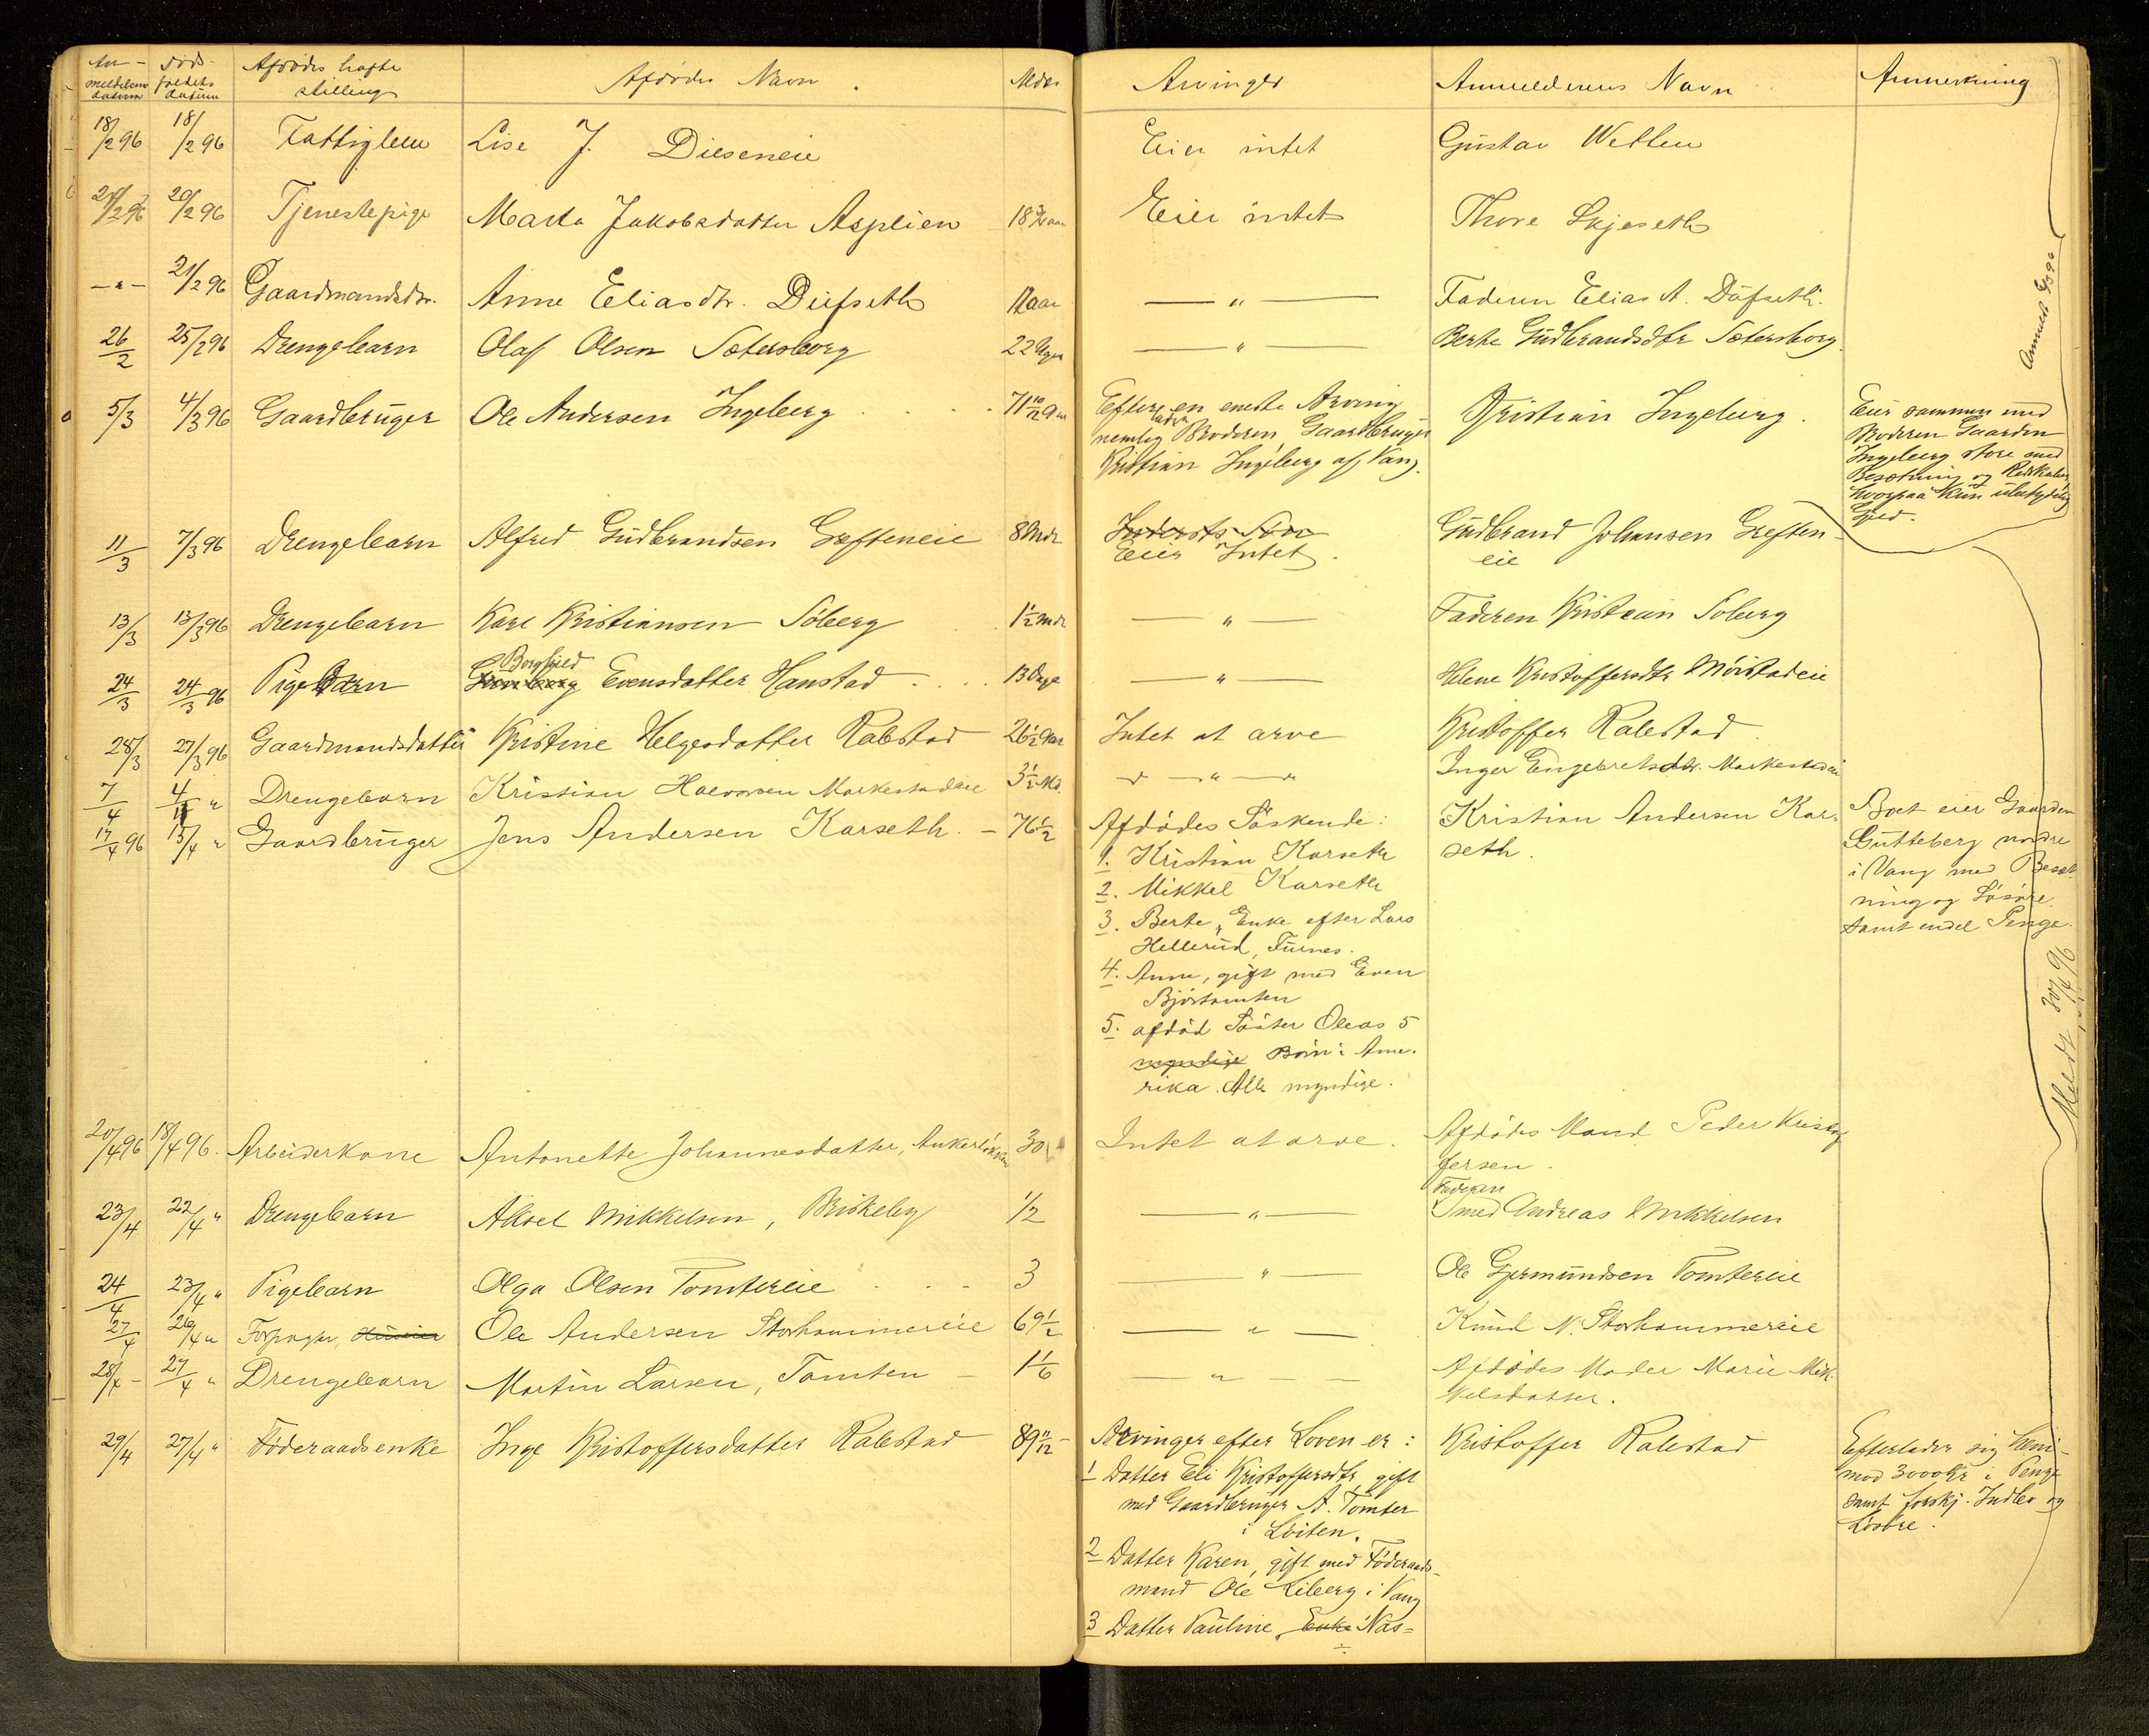 An- Døds- Afdødes hafte Afdødes Navn Alder Arvinger Anmelderens Navn Anmerkning
meldelses faldets stilling
datum datum
18/2 96 18/2 96 Fattiglem Lise J. Dieseneie Eier intet Gustav Wetten
20/2 96 Tjenestepige Marta Jakobsdatter Asplien 18 Eier intet Thore Skjeseth
-"- 21/2 96 Gaardmandsdtr. Anne Eliasdtr. Diefseth aar — " — Faderen Elias A. Dufseth.
26/2 25/2 96 Drengebarn Olaf Olsen Sætersborg 22 Uger — " — Berte Gudbrandsdtr Sætersborg
5/3 4/3 96 Gaardbruger Ole Andersen Ingeberg 71 10/12 Aar Efter en eneste Arving Kristian Ingeberg. Eier sammen med
nemlig Broderen Gaardbruger Broderen Gaarden
Kristian Ingeberg af Vang. Ingeberg store med
Besætning og Redskaber
hvorpaa kun ubetydelig
Gjed.
Anmeldt 6/3 96
11/3 7/3 96 Drengebarn Alfred Gudbrandsen Grefteneie 8 Mdr Indersts Søn Gudbrand Johansen Greften-
Eier Intet. eie
13/3 13/3 96 Drengebarn Kare Kristiansen Söberg 1 1/2 Mdr — " — Faderen Kristian Soberg
Borghild
24/3 24/3 96 Pigebarn Evensdatter Hanstad 13 Dage — " — Helene Kristoffersdtr Möistadeie
28/3 27/3 96 Gaardmandsdatter Kristine Helgesdatter Rabstad 26 1/2 Aar Intet at arve Kristoffer Rabstad
7/4 4/4 " Drengebarn Kristian Halvorsen Markestadeie 3 1/2 Md. — " — Inger Engebretsdtr. Markestadeie
17/4 96 15/4 " Gaardbruger Jens Andersen Karseth. - 76 1/2 Afdödes Söskende: Kristian Andersen Kar- Boet eier Gaarden
1. Kristian Karseth seth. Gutteberg nordre
2. Mikkel Karseth i Vang med Besæt-
3. Berte, Enke efter Lars ning og Lösöre
Hellerud, Furnes. samt endel Penge.
4. Anne, gift med Even
Bjørtomten
5. afdöd Söster Oleas 5
myndige Börn i Ame-
rika. Alle myndige.
Meldt 20/4 96
20/4 96 18/4 96. Arbeiderkone Antonette Johannesdatter, Ankerløkken 30 Intet at arve. Afdödes Mand Peder Kristof
fersen.
Faderen
23/4 22/4 " Drengebarn Aksel Mikkelsen, Briskeby 1/2 — " — Smed Andreas Mikkelsen
24/4 23/4 " Pigebarn Olga Olsen Tomtereie 3 — " — Ole Gjermundsen Tomtereie
27/4 26/4 " Forpagter, Ole Andersen Storhammereie 69 1/2 — " — Knud N. Storhammereie
28/4 - 27/4 " Drengebarn Martin Larsen, Tomten - 1 1/6 — " — Afdödes Moder Marie Mik-
kelsdatter.
29/4 27/4 " Föderaadsenke Inge Kristoffersdatter Rabstad 89 11/12 Arvinger efter Loven er: Kristoffer Rabstad Efterlader sig hen-
1 Datter Eli Kristoffersdtr, gift mod 3000 Kr i Penge
med Gaardbruger A. Tomter samt forskj. Indbo og
i Löiten. Lösöre.
2 Datter Karen, gift med Föderaads-
mand Ole Liberg i Vang
3 Datter Pauline, Enke Nas=